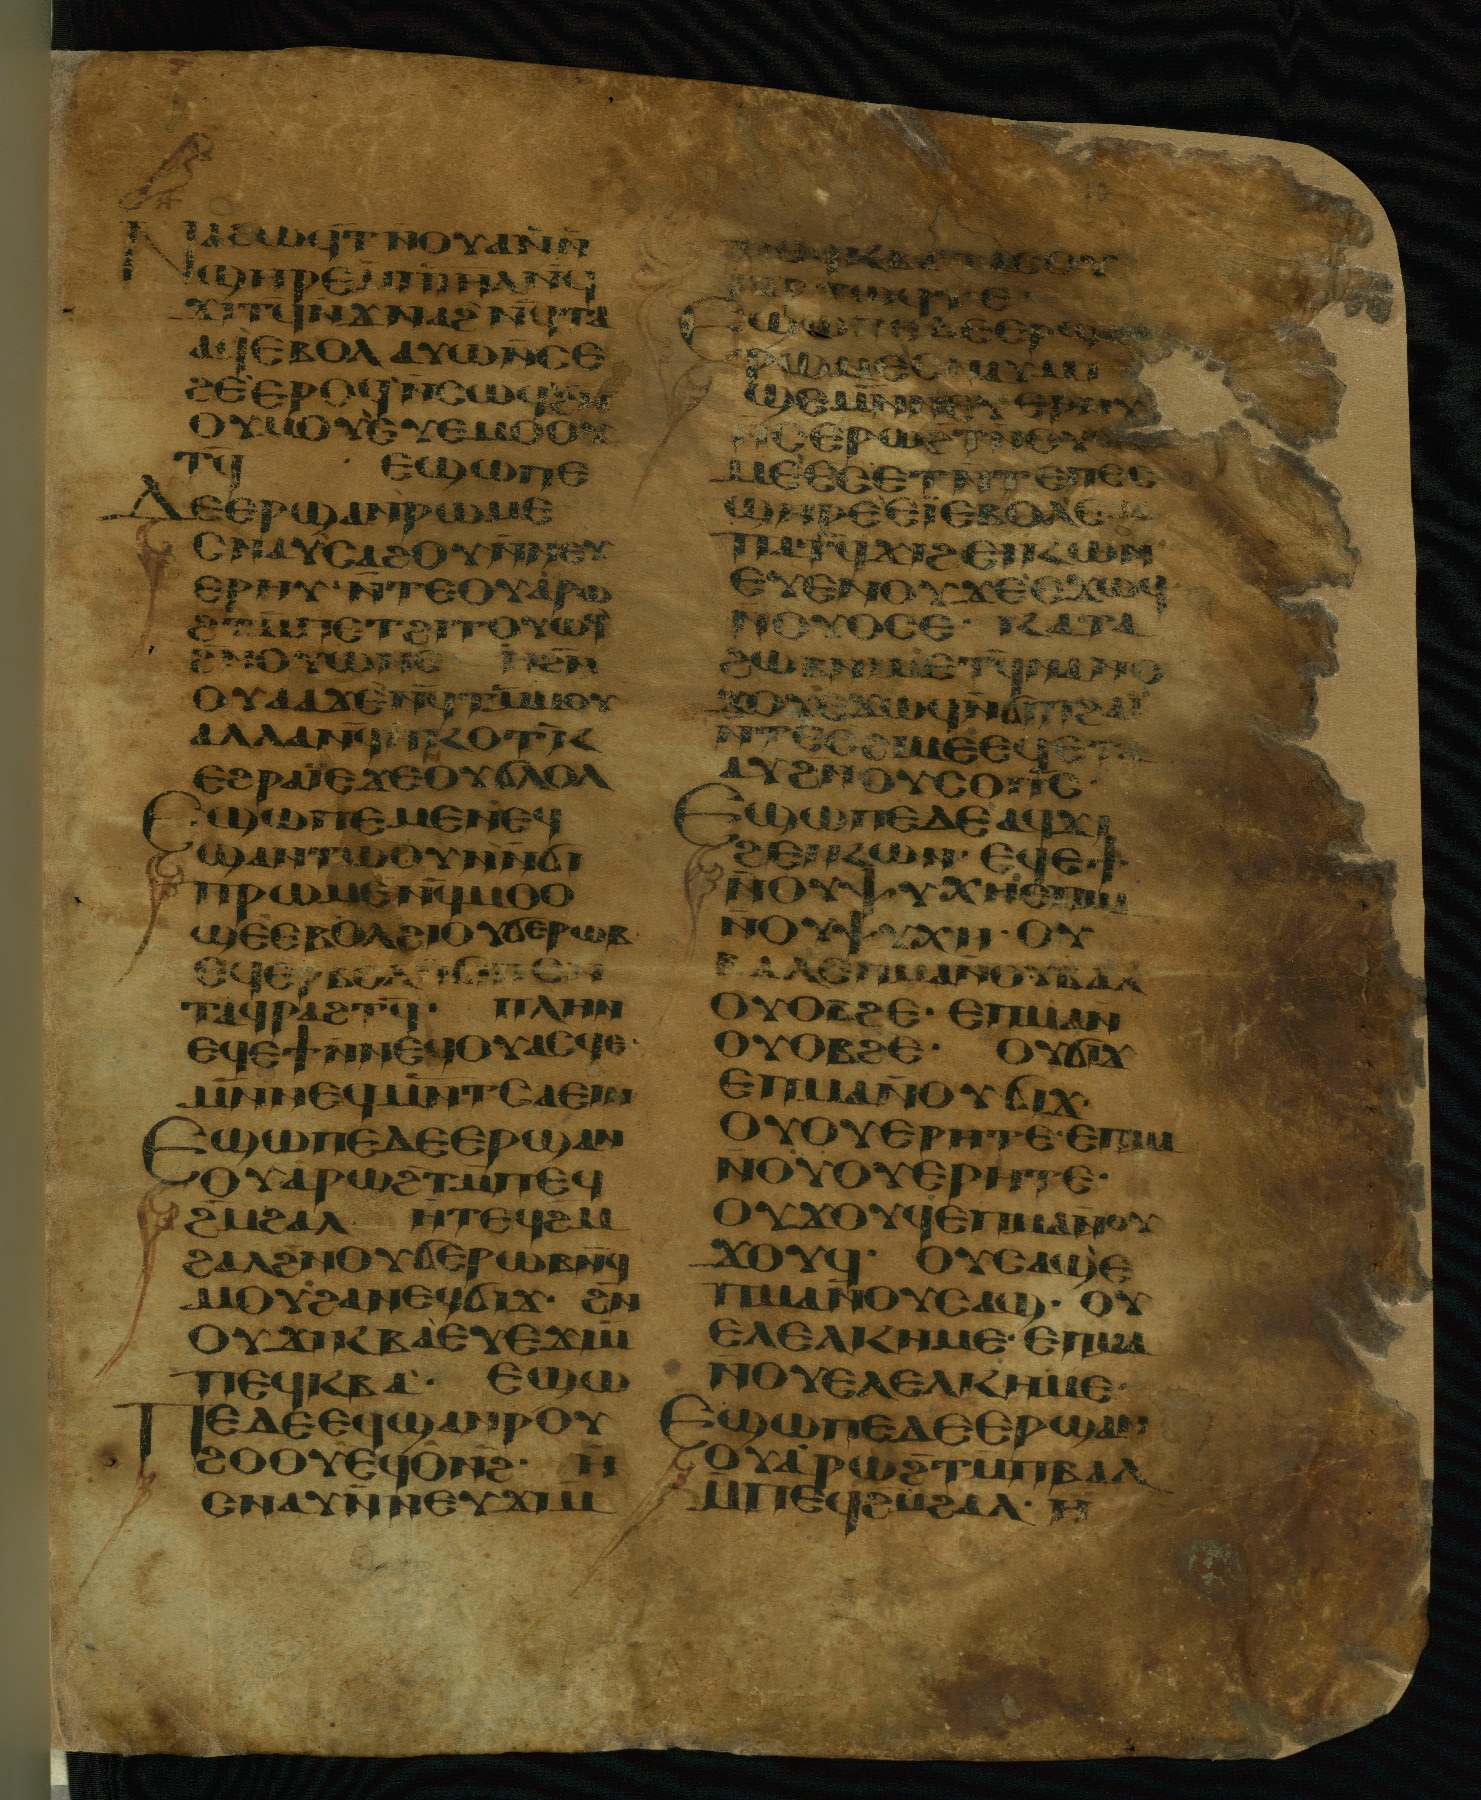 ⲚⲀϨⲰϤⲦ ⲚⲞⲨⲀ Ⲛ̄Ⲛ̄
ϢⲎⲢⲈ Ⲙ̄ⲠⲒⲎⲖ Ⲛ̄Ϥ
ϪⲒⲦϤ̄ Ⲛ̄ϪⲚⲀϨ Ⲛ̄ϤⲦⲀ
ⲀϤ ⲈⲂⲞⲖ ⲀⲨⲰ Ⲛ̄ⲤⲈ
ϨⲈ ⲈⲢⲞϤ Ⲛ̄ⲤⲰϤ ϨⲚ
ⲞⲨⲘⲞⲨ ⲈⲨⲈⲘⲞⲞⲨ
ⲦϤ̄ ⲈϢⲰⲠⲈ
ⲆⲈ ⲈⲢϢⲀⲚⲢⲰⲘⲈ
ⲤⲚⲀⲨ ⲤⲀϨⲞⲨ Ⲛ̄ⲚⲈⲨ
ⲈⲢⲎⲨ· Ⲛ̄ⲦⲈⲞⲨⲀ ⲢⲰ
ϨⲦ Ⲙ̄ⲠⲈⲦϨⲒⲦⲞⲨⲰϤ
ϨⲚⲞⲨⲰⲚⲈ Ⲏ ϨⲚ̄
ⲞⲨⲀⲀϪⲈ Ⲛ̄ϤⲦⲘ̄ⲘⲞⲨ
ⲀⲖⲖⲀ Ⲛ̄ϤⲚ̄ⲔⲞⲦⲔ̄
ⲈϨⲢⲀⲒ ⲈϪⲈⲞⲨϬⲖⲞⲖ
ⲈϢⲰⲠⲈ ⲘⲈⲚ ⲈϤ
ϢⲀⲚⲦⲰⲞⲨⲚ Ⲛ̄ϬⲒ
ⲠⲢⲰⲘⲈ Ⲛ̄ϤⲘⲞⲞ
ϢⲈ ⲈⲂⲞⲖ ϨⲒⲞⲨϬⲈⲢⲰⲂ
ⲈϤⲈⲢⲂⲞⲖ Ⲛ̄ϬⲒⲠⲈⲚ
ⲦⲀϤⲢⲀϨⲦϤ̄· ⲠⲖⲎⲚ
ⲈϤⲈϮ Ⲛ̄ⲚⲈϤⲞⲨⲀⲤϤⲈ·
Ⲙ̄Ⲛ̄ⲚⲈϤⲘⲚ̄ⲦⲤⲀⲈⲒⲚ
ⲈϢⲰⲠⲈ ⲆⲈ ⲈⲢϢⲀⲚ
ⲞⲨⲀ ⲢⲰϨⲦ Ⲙ̄ⲠⲈϤ
ϨⲘ̄ϨⲀⲖ Ⲏ ⲦⲈϤϨⲘ̄
ϨⲀⲖ ϨⲚ̄ⲞⲨϬⲈⲢⲰⲂ Ⲛ̄Ϥ
ⲘⲞⲨ ϨⲀⲚⲈϤϬⲒϪ· ϨⲚ
ⲞⲨϪⲒⲔⲂⲀ ⲈⲨⲈϪⲒⲘ̄
ⲠⲈϤⲔⲂⲀ· ⲈϢⲰ
ⲠⲈ ⲆⲈ ⲈϤϢⲀⲚⲢⲞⲨ
ϨⲞⲞⲨ ⲈϤⲞⲚϨ̄· Ⲏ
ⲤⲚⲀⲨ Ⲛ̄ⲚⲈⲨϪⲒⲘ̄
ⲠⲈϤⲔⲂⲀ
ⲈϢⲰⲠⲈ ⲆⲈ ⲈⲢϢⲀⲚ
ⲢⲰⲘⲈ ⲤⲚⲀⲨ ⲘⲒ
ϢⲈ Ⲙ̄Ⲛ̄ⲚⲈⲨⲈⲢⲎⲨ
Ⲛ̄ⲤⲈⲢⲰϨⲦ Ⲛ̄ⲞⲨ
ⲘⲈ ⲈⲤⲈⲈⲦ Ⲛ̄ⲦⲈⲠⲈⲤ
ϢⲎⲢⲈ ⲈⲒ ⲈⲂⲞⲖ ⲈⲘ
ⲠⲀⲦϤ̄ϪⲒϨⲈⲒⲔⲰⲚ
ⲈⲨⲈⲚⲞⲨϪⲈ ⲈϪⲰϤ
Ⲛ̄ⲞⲨⲞⲤⲈ· ⲔⲀⲦⲀ
ϨⲰⲂ ⲚⲒⲘ ⲈⲦϤ̄ⲚⲀⲚⲞ
ϪⲞⲨ ⲈϪⲰϤ Ⲛ̄ϬⲒⲠϨⲀⲒ
Ⲛ̄ⲦⲈⲤϨⲒⲘⲈ ⲈϤⲈⲦⲀ
ⲀⲨ ϨⲚ̄ⲞⲨⲤⲞⲠⲤ̄·
ⲈϢⲰⲠⲈ ⲆⲈ ⲀϤϪⲒ
ϨⲈⲒⲔⲰⲚ· ⲈϤⲈϮ
Ⲛ̄ⲞⲨⲮⲨⲬⲎ ⲈⲠⲘⲀ
Ⲛ̄ⲞⲨⲮⲨⲬⲎ· ⲞⲨ
ⲂⲀⲖ ⲈⲠⲘⲀ Ⲛ̄ⲞⲨⲂⲀⲖ
ⲞⲨⲞⲂϨⲈ· ⲈⲠⲘⲀ Ⲛ̄
ⲞⲨⲞⲂϨⲈ· ⲞⲨϬⲒϪ
ⲈⲠⲘⲀ Ⲛ̄ⲞⲨϬⲒϪ·
ⲞⲨⲞⲨⲈⲢⲎⲦⲈ· ⲈⲠⲘⲀ
Ⲛ̄ⲞⲨⲞⲨⲈⲢⲎⲦⲈ·
ⲞⲨϪⲞⲨϤ ⲈⲠⲘⲀ Ⲛ̄ⲞⲨ
ϪⲞⲨϤ· ⲞⲨⲤⲀϢ Ⲉ
ⲠⲘⲀ Ⲛ̄ⲞⲨⲤⲀϢ· ⲞⲨ
ⲈⲖⲈⲖⲔⲎⲘⲈ· ⲈⲠⲘⲀ
ⲚⲞⲨⲈⲖⲈⲖⲔⲎⲘⲈ·
ⲈϢⲰⲠⲈ ⲆⲈ ⲈⲢϢⲀⲚ
ⲞⲨⲀ ⲢⲰϨⲦ Ⲙ̄ⲠⲂⲀⲖ
Ⲙ̄ⲠⲈϤϨⲘ̄ϨⲀⲖ· Ⲏ